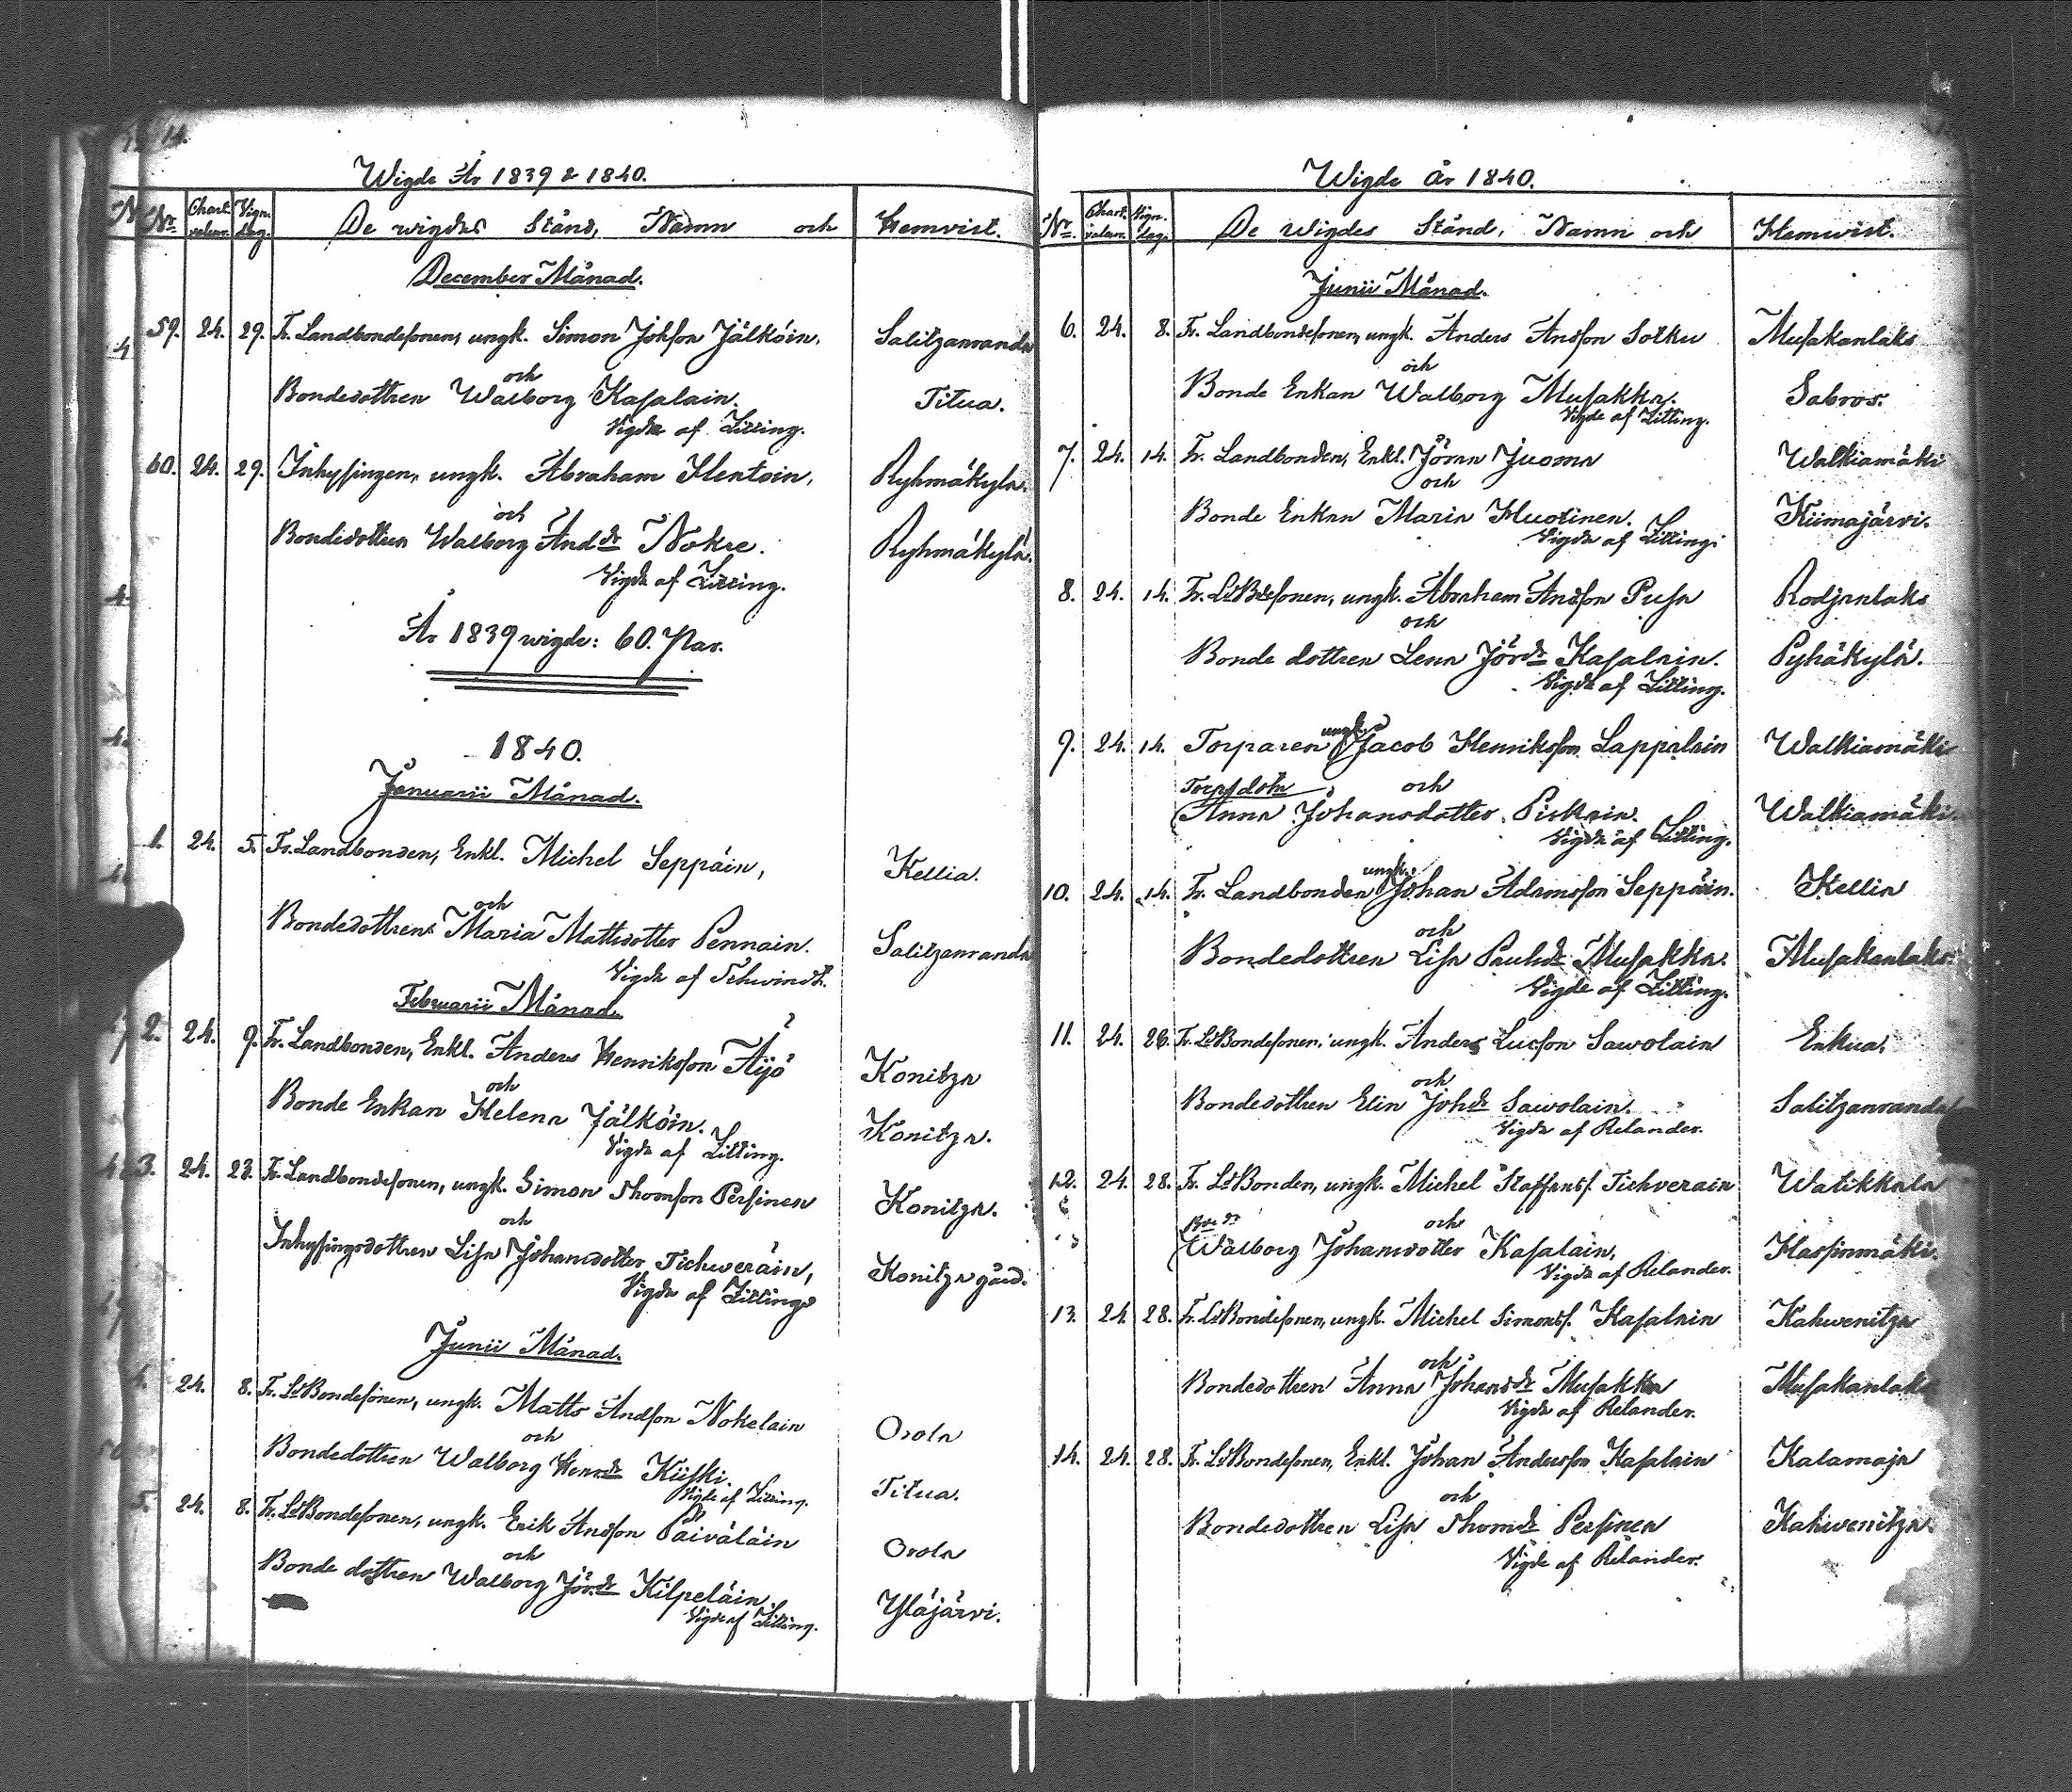 14.
Wigde År 1839 & 1840.
Nr. Chart. valeur. Vign. dag. De wigdes Stånd, Namn och Hemvist.
December Månad.
59. 24. 29. Fr. Landbondesonen, ungk. Simon Johsson Jälköin, Salitzanranda
och
Bondedottren Walborg Kasalain. Titua.
Vigde af Litting.
60. 24. 29. Inhysingen, ungk. Abraham Hentoin, Ryhmäkylä.
och
Bondedottren Walborg Anddr Nokre. Ryhmäkylä.
Vigde af Litting.
År 1839 wigde: 60. Par.
1840.
Januarii Månad.
1. 24. 5. Fr. Landbonden, Enkl. Michel Seppäin, Kellia.
och
Bondedottren Maria Mattsdotter Pennain. Salitzanranda
Vigde af Schvindt.
Februarii Månad.
2. 24. 9. Fr. Landbonden, Enkl. Anders Henriksson Äijö Konitza
och
Bonde Enkan Helena Jälköin. Konitza.
Vigde af Litting.
3. 24. 23. Fr. Landbondesonen, ungk. Simon Thomsson Persinen Konitza.
och
Inhysingsdottren Lisa Johansdotter Tichweräin, Konitza gård.
Vigde af Litting
Junii Månad.
4. 24. 8. Fr. LdBondesonen, ungk. Matts Andsson Nokelain Orola
och
Bondedottren Walborg Henrdr Kiiski. Titua.
Vigde af Litting.
5. 24. 8. Fr. LdBondesonen, ungk. Erik Andsson Päiväläin Orola
och
Bonde dottren Walborg Jör.dr Kilpeläin. Yläjärvi.
Vigde af Litting.
Wigde År 1840.
Nr. Chart. valeur. Vign. dag. De wigdes Stånd, Namn och Hemwist.
Junii Månad.
6. 24. 8. Fr. Landbondesonen, ungk. Anders Andsson Sotku Musakanlaks
och
Bonde Enkan Walborg Musakka. Sabros.
Vigde af Litting.
7. 24. 14. Fr. Landbonden, Enkl. Jöran Juoma Walkiamäki
och
Bonde Enkan Maria Huotinen. Kiimajärvi.
Vigde af Litting.
8. 24. 14. Fr. LdBdesonen, ungk. Abraham Andsson Pusa Rodjanlaks
och
Bonde dottren Lena Jördr Kasalain. Pyhäkylä.
Vigde af Litting.
9. 24. 14. Torparen ungk. Jacob Henriksson Lappalain Walkiamäki
Torp.dotn och
Anna Johansdotter Pirkain. Walkiamäki.
Vigde af Litting.
10. 24. 14. Fr. Landbonden ungk. Johan Adamsson Seppäin. Kellia
och
Bondedottren Lisa Paulsdr Musakka. Musakanlaks.
Vigde af Litting.
11. 24. 26. Fr. LdBondesonen, ungk. Anders Lucsson Sawolain Enkua.
och
Bondedottren Elin Johdr Sawolain. Salitzanranda
Vigde af Relander.
12. 24. 28. Fr. LdBonden, ungk. Michel Staffansf. Tichverain Watikkala
Bde dr och
Walborg Johansdotter Kasalain, Hassinmäki.
Vigde af Relander.
13. 24. 28. Fr. LdBondesonen, ungk. Michel Simonsf. Kasalain Kahwenitza
och
Bondedottren Anna Johansdr Musakka Musakanlaks
Vigde af Relander.
14. 24. 28. Fr. LdBondesonen, Enkl. Johan Andersson Kasalain Kalamaja
och
Bondedottren Lisa Thomdr Persinen Kahwenitza.
Vigde af Relander.